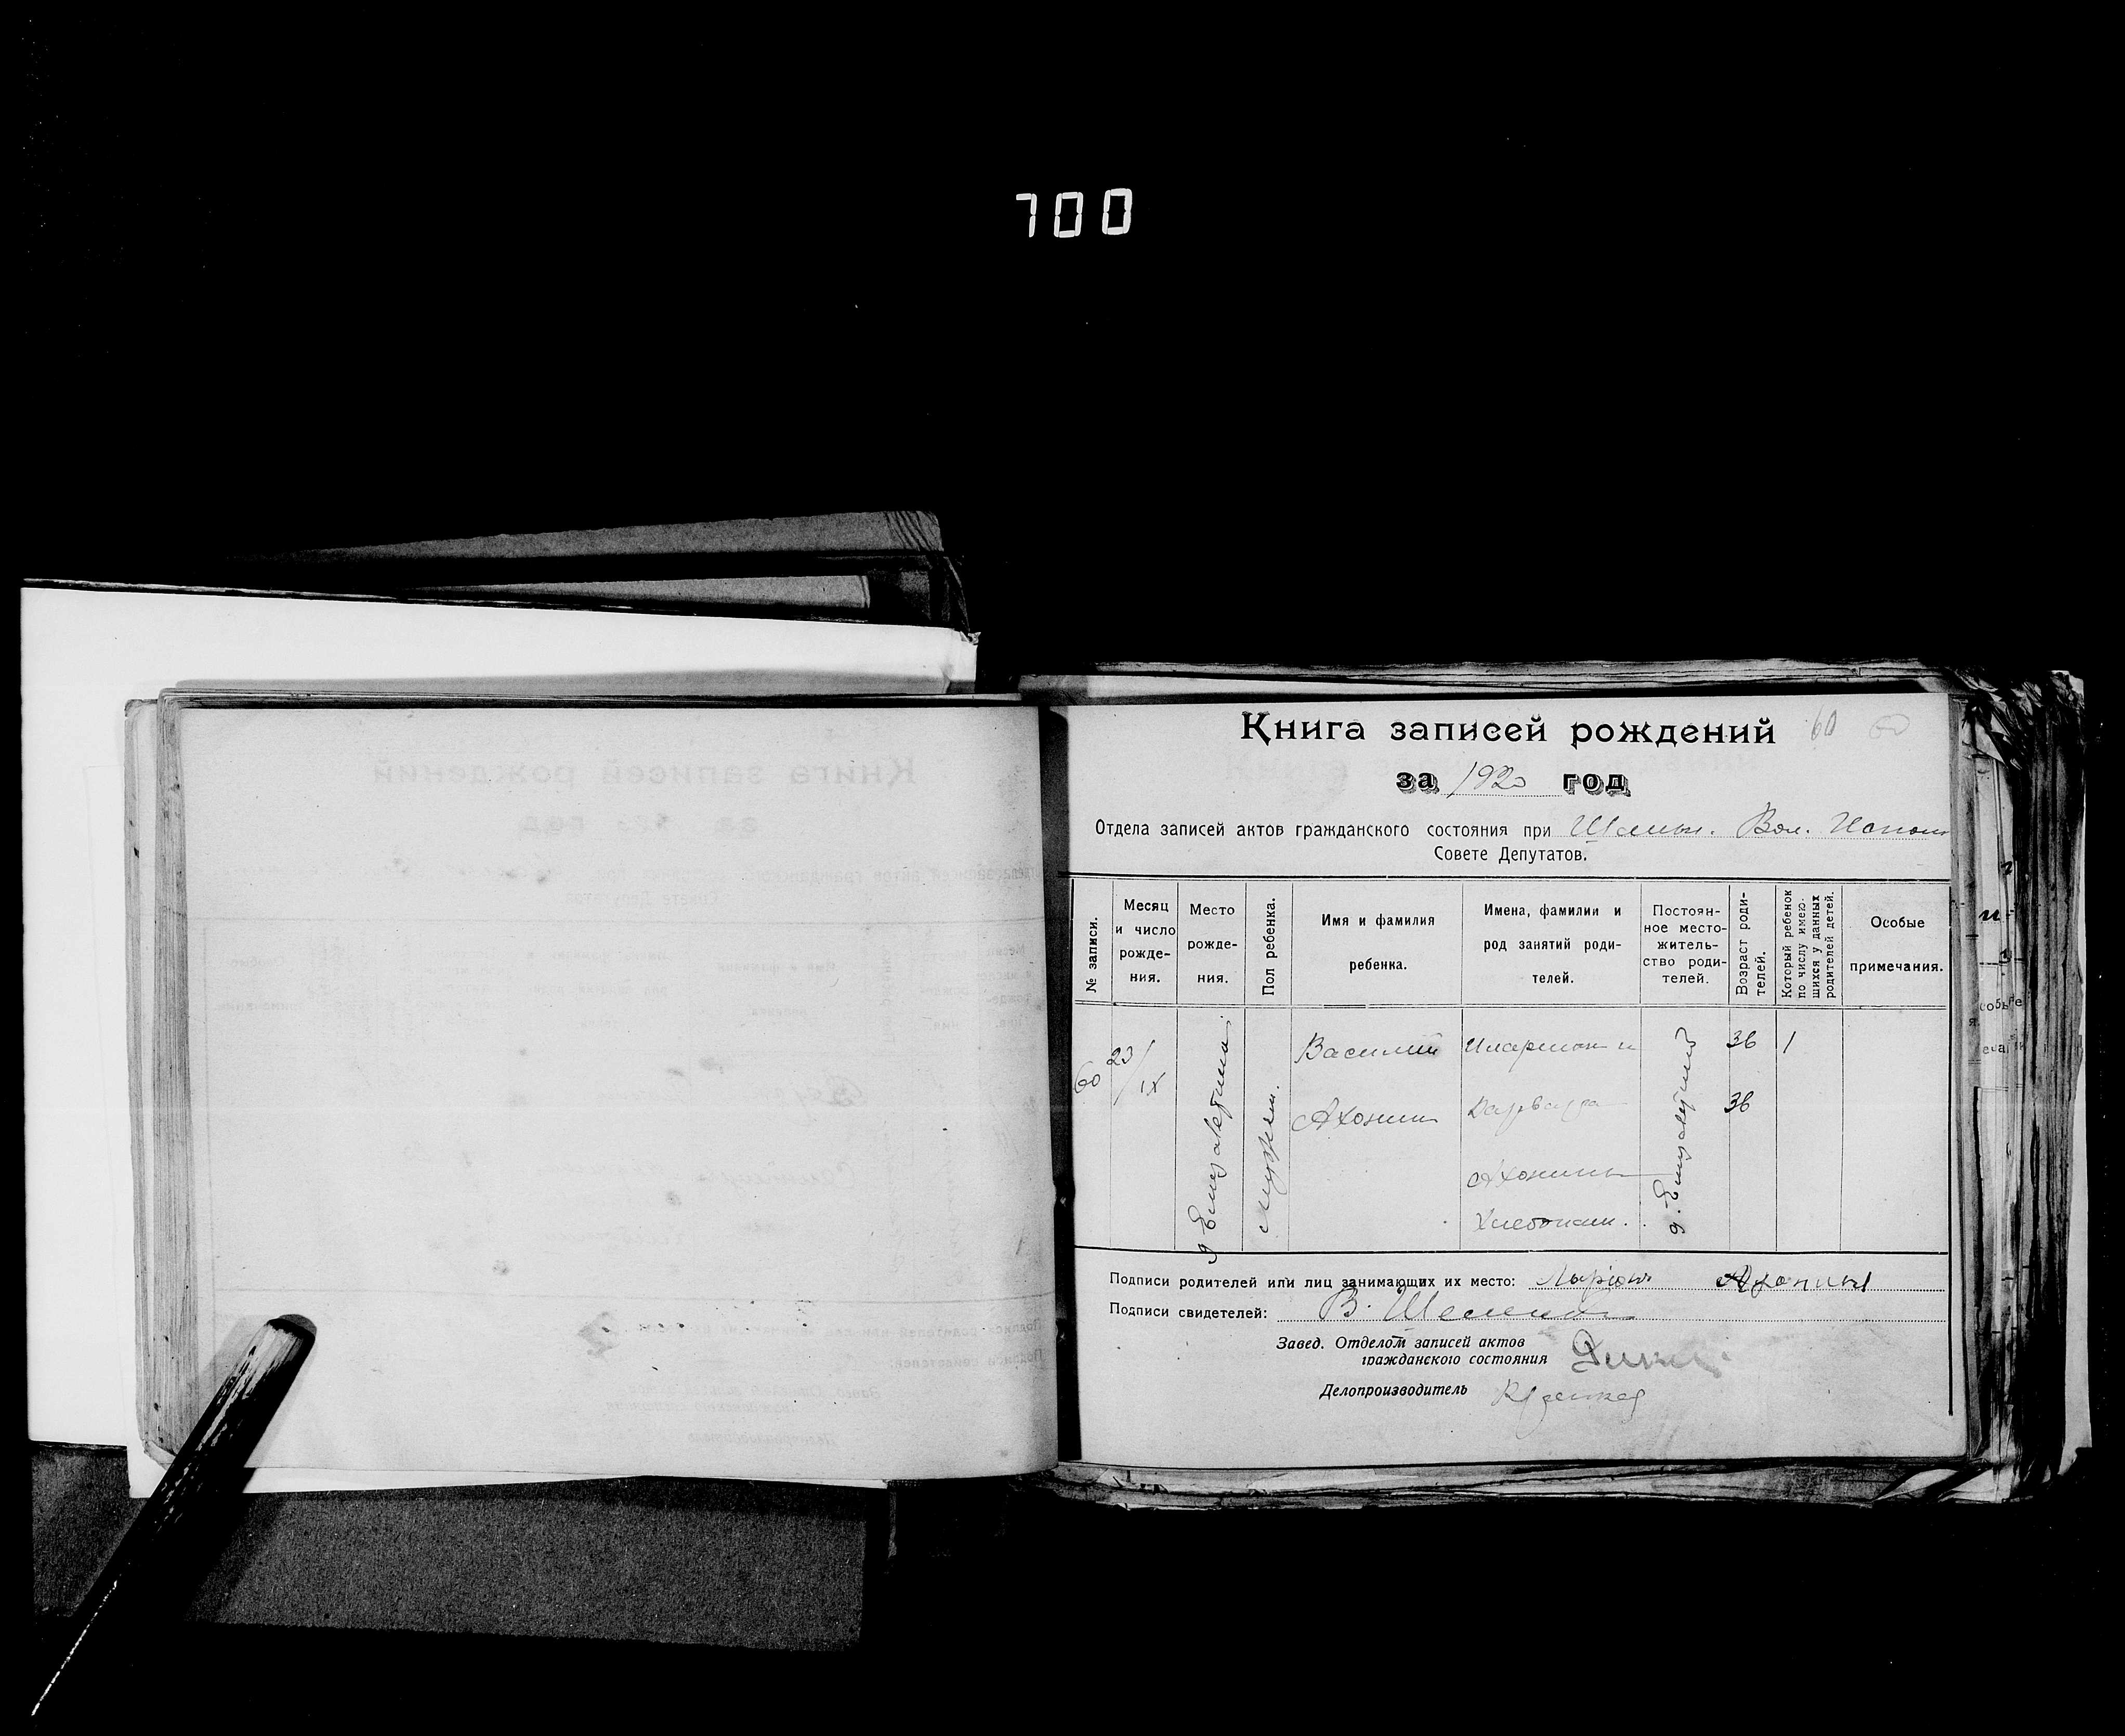 700
Книга записей рождений 60
за 1920 год
Отдела записей актов гражданского состояния при Вол. Исполк
Совете Депутатов.
№ записи.
Месяц и число рожде- ния.
Место рожде- ния.
Пол ребенка.
Имя и фамилия ребенка.
Имена, фамилии и род занятий роди- телей.
Постоян- ное место- житель- ство роди- телей.
Возраст роди- телей.
Который ребенок по числу имею- шихся у данных родителей детей.
Особые примечания.
60
23/IX
д Елизаветина
мужск.
Василий
Афонин
Иларион и
Варвара
Афонины
Хлебопаш.
д. Елизаветино
36
36
1
Подписи родителей или лиц занимающих их место: Ларион Афонин
Подписи свидетелей: В.
Завед. Отделом записей актов
гражданского состояния
Делопроизводитель